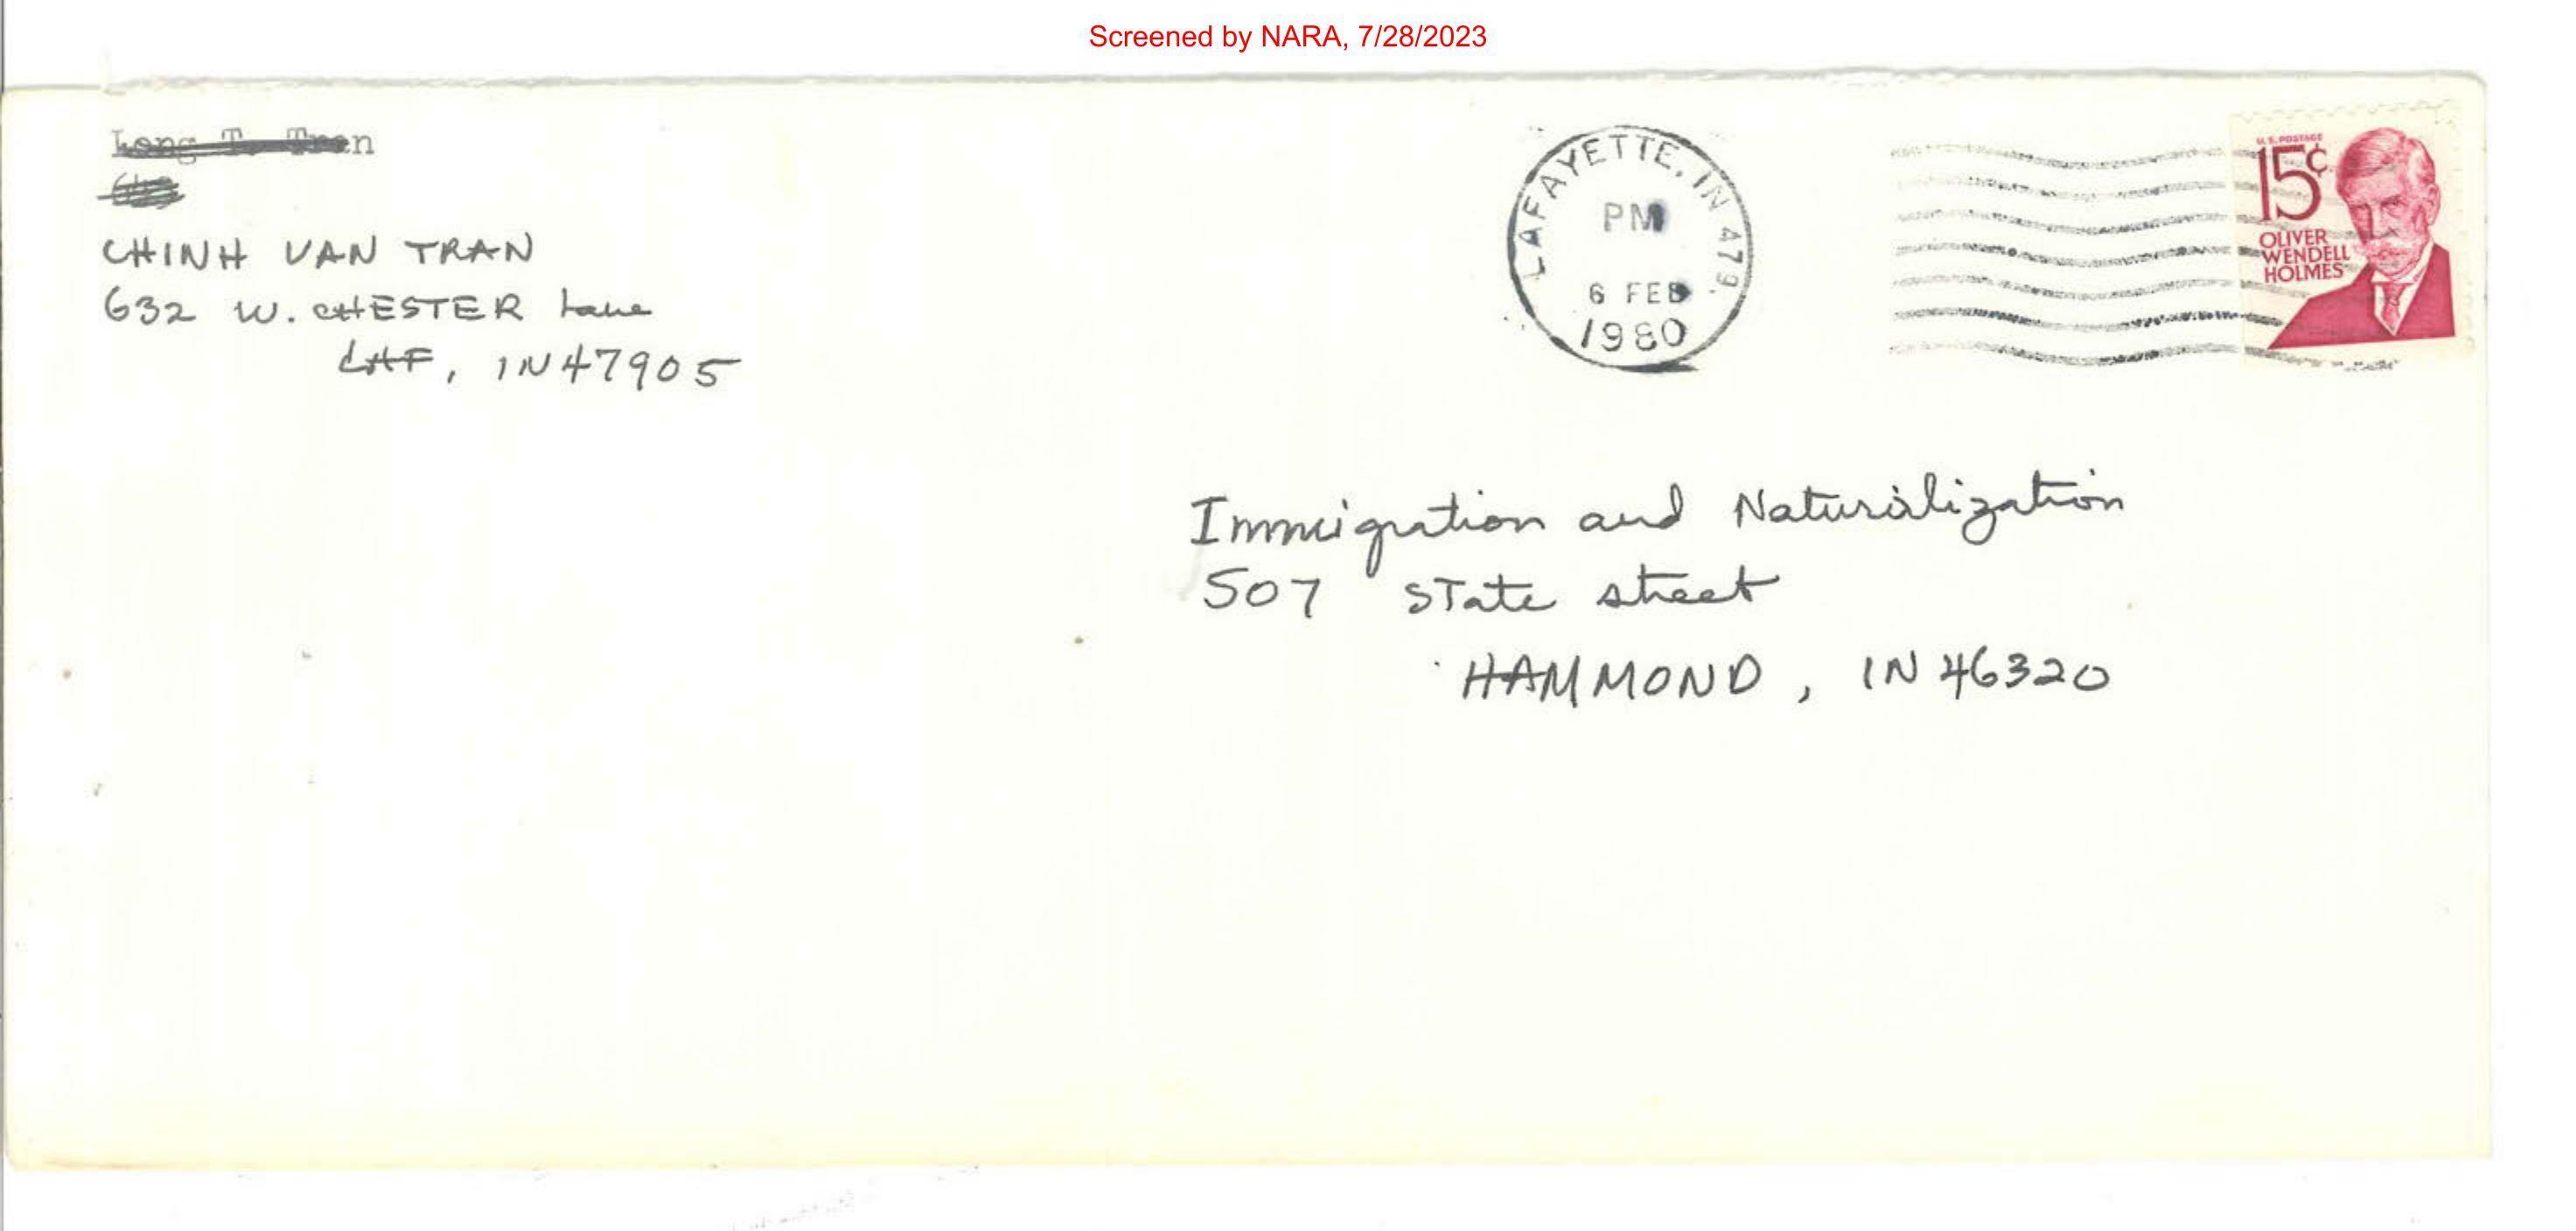 Screened by NARA, 7/28/2023
Long T. Tran
CHINH VAN TRAN
632 W. CHESTER Lane
LAF, IN 47905
LAFAYETTE, IN 479.
PM
6 FEB
1980
U.S. POSTAGE
15¢
OLIVER
WENDELL
HOLMES
Immigration and Naturalization
507 State street
HAMMOND, IN 46320